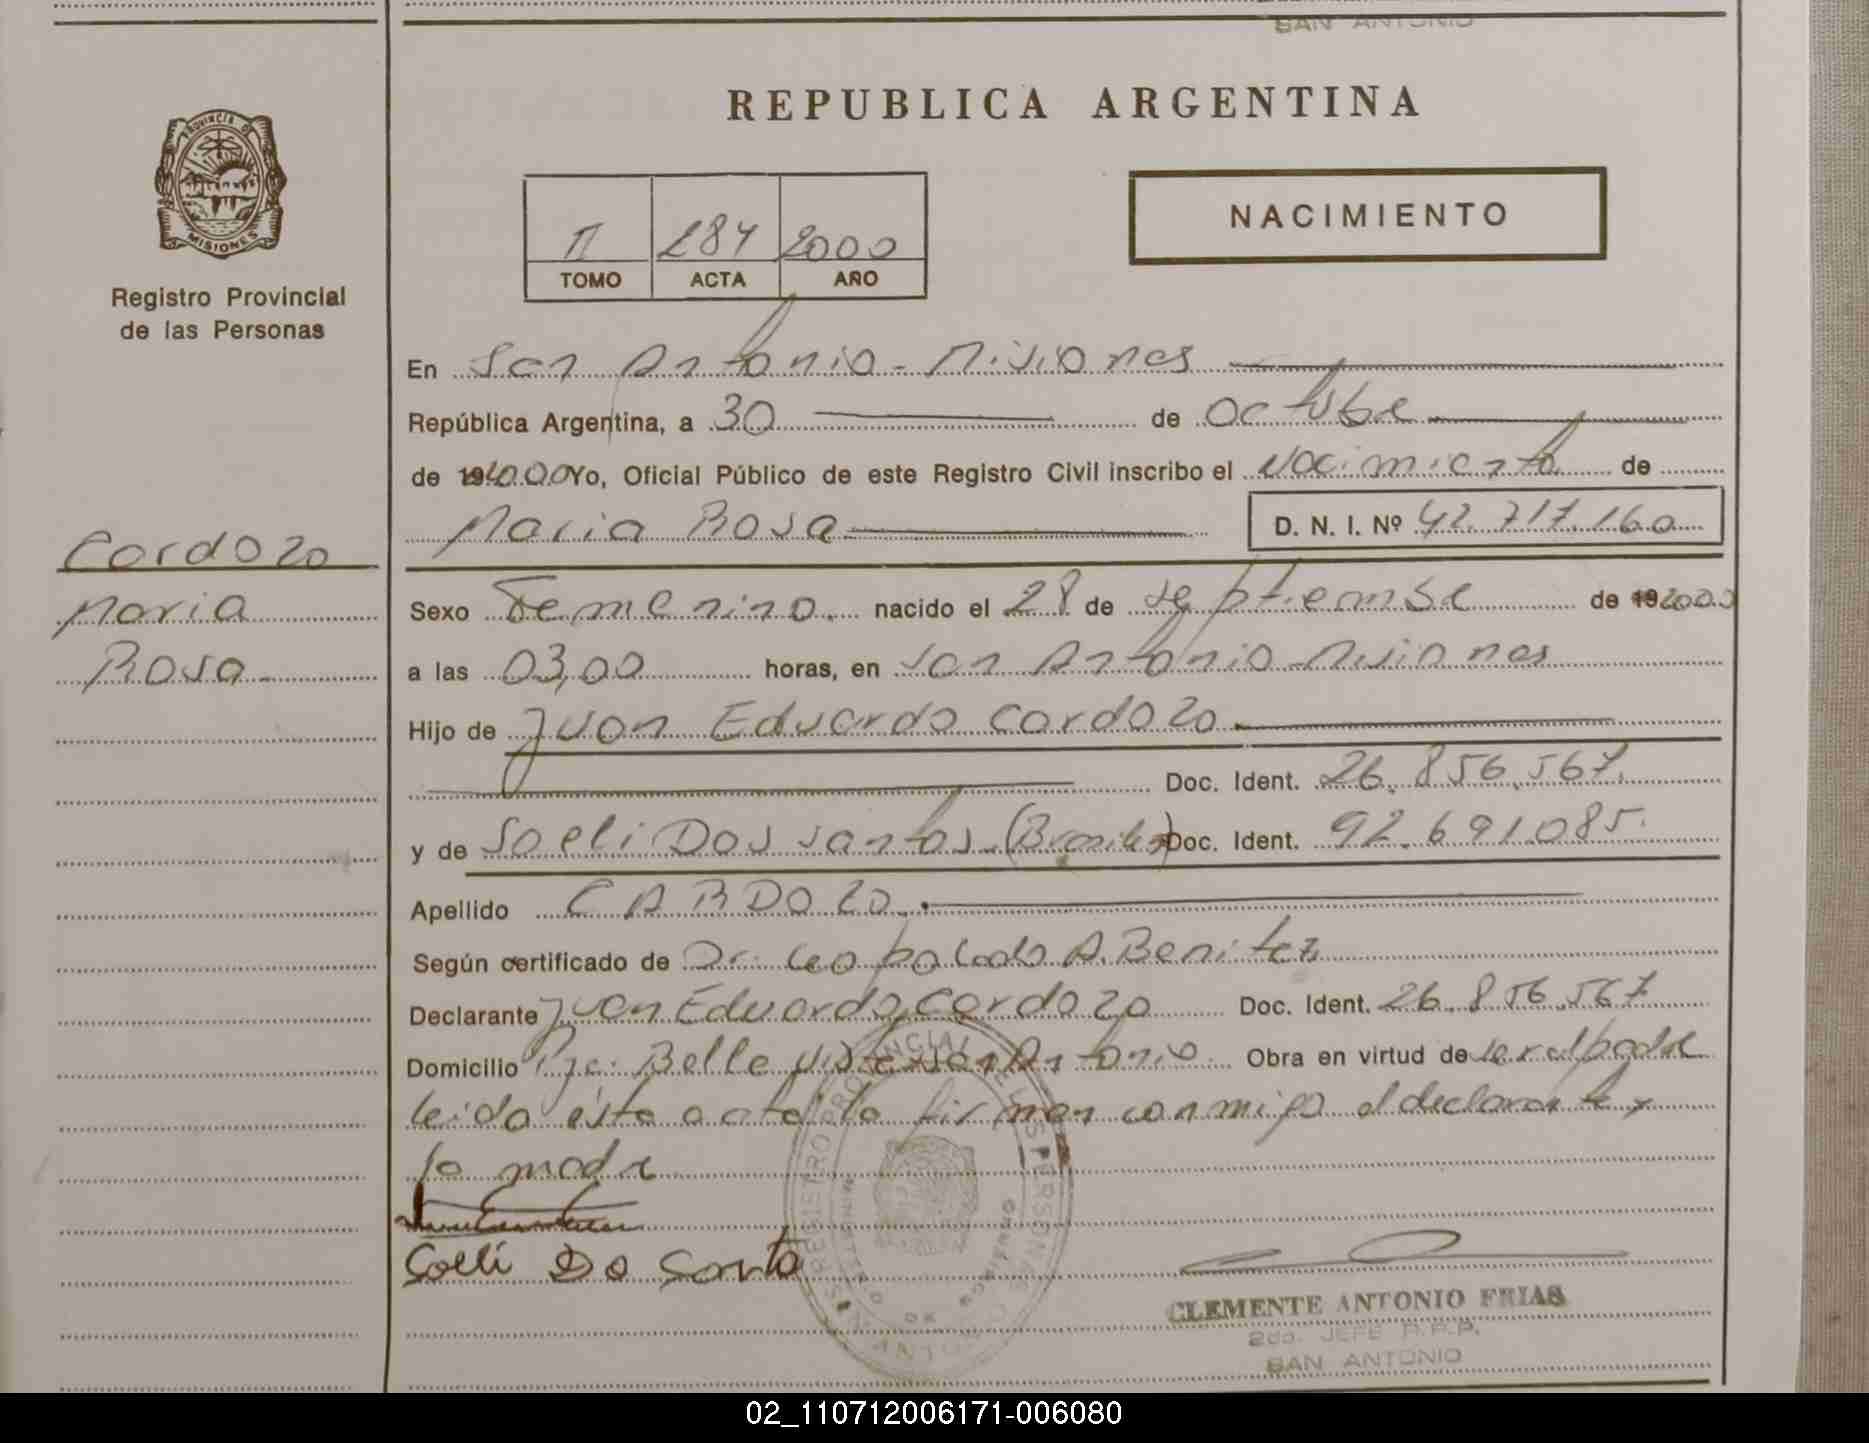 SAN ANTONIO
REPUBLICA ARGENTINA
PROVINCIA DE
MISIONES
Registro Provincial
de las Personas
NACIMIENTO
II 284 2000
TOMO ACTA AÑO
En San Antonio - Misiones
República Argentina, a 30 de Octubre
de 192000 Yo, Oficial Público de este Registro Civil inscribo el Nacimiento de
Maria Rosa D. N. I. Nº 42.717.160
Cordozo
Maria
Rosa
Sexo Femenino. nacido el 28 de septiembre de 192000
a las 03,00 horas, en San Antonio - Misiones
Hijo de Juan Eduardo Cardozo
Doc. Ident. 26.856.567.
y de Soeli Dos santos. (Brasilera) Doc. Ident. 92.691.085.
Apellido CARDOZO.
Según certificado de Dr. Leopoldo A. Benitez
Declarante Juan Eduardo Cardozo Doc. Ident. 26.856.567
Domicilio Pje. Bella vista San Antonio. Obra en virtud de ser el padre
leida ésta acta la firman conmigo el declarante y
la madre
Soeli Do Santo
REGISTRO PROVINCIAL DE LAS PERSONAS
MINISTERIO DE GOBIERNO
SAN ANTONIO
CLEMENTE ANTONIO FRIAS
2do. JEFE R.P.P.
SAN ANTONIO
02_110712006171-006080